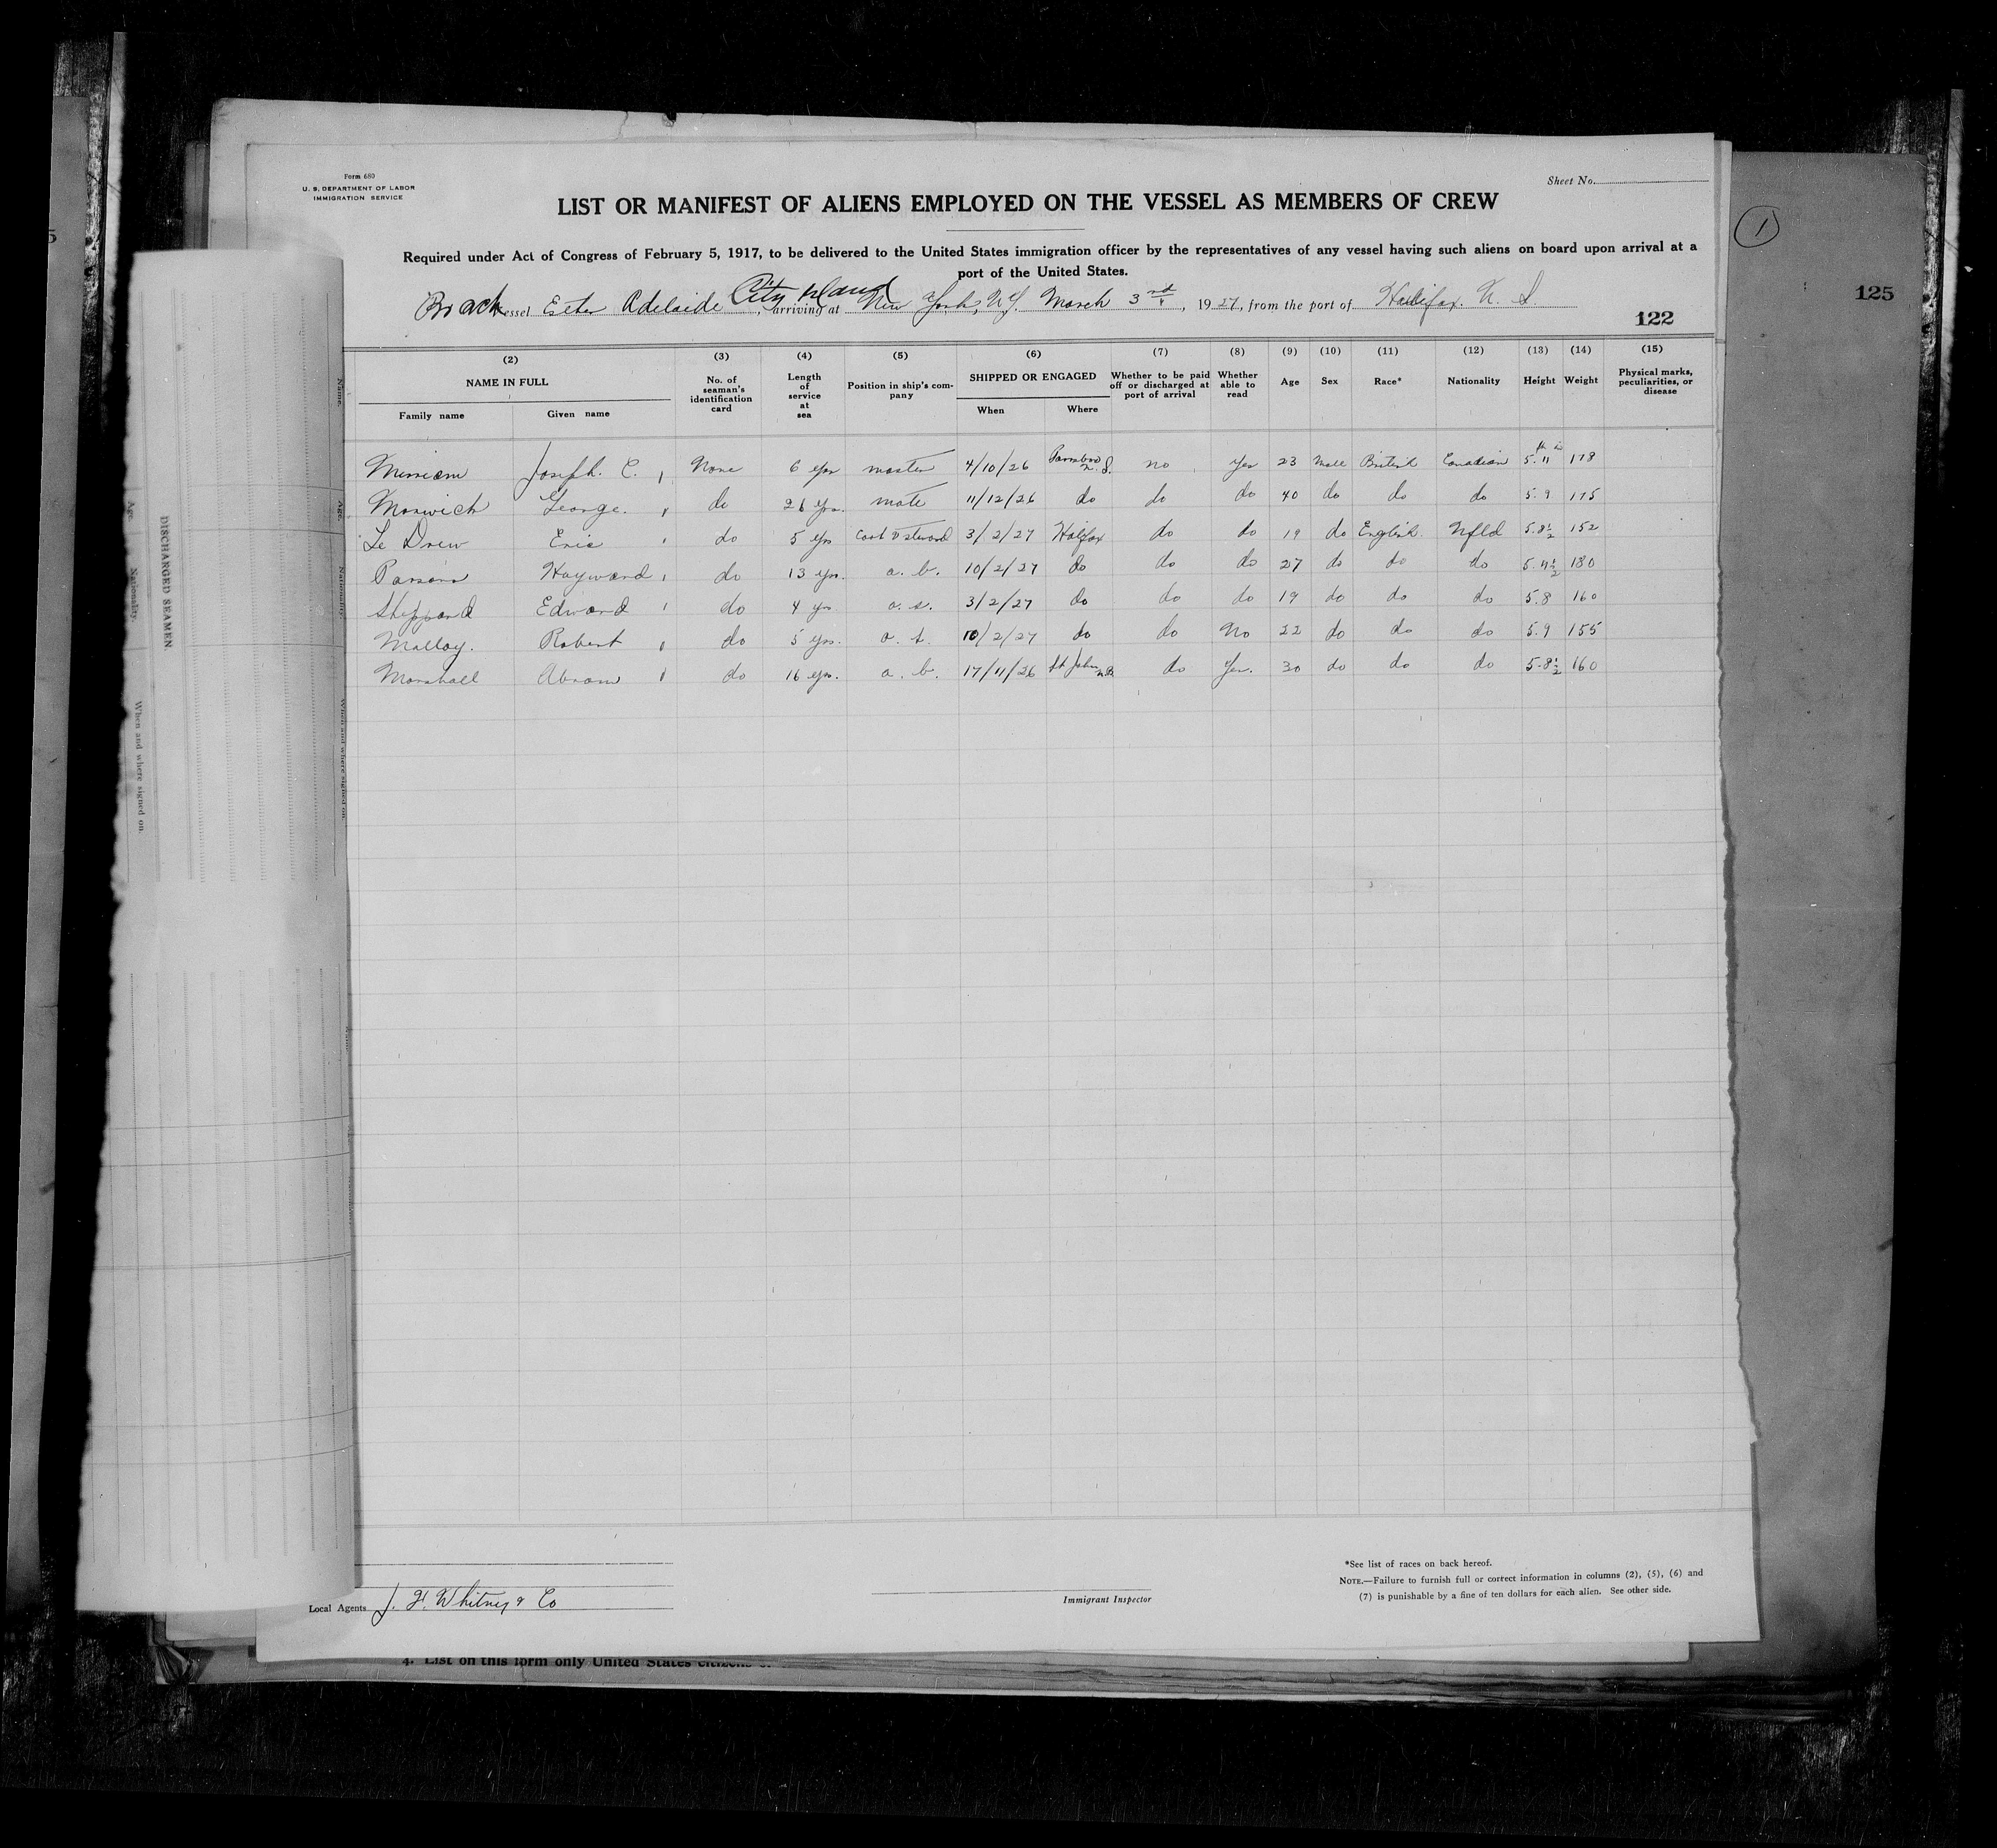 Form 680
U. S. DEPARTMENT OF LABOR
IMMIGRATION SERVICE
Sheet No.
LIST OR MANIFEST OF ALIENS EMPLOYED ON THE VESSEL AS MEMBERS OF CREW
Required under Act of Congress of February 5, 1917, to be delivered to the United States immigration officer by the representatives of any vessel having such aliens on board upon arrival at a
port of the United States.
City Island
essel Ester Adelaide, arriving at New York, N.Y. March 3rd, 1927, from the port of Halifax. N. S
1
125
122
(2) (3) (4) (5) (6) (7) (8) (9) (10) (11) (12) (13) (14) (15)
NAME IN FULL
Family name Given name
No. of seaman's identification card
Length of service at sea
Position in ship's company
SHIPPED OR ENGAGED
When Where
Whether to be paid off or discharged at port of arrival
Whether able to read
Age Sex Race* Nationality Height Weight
Physical marks, peculiarities, or disease
Merriam Joseph. C. None 6 yrs master 4/10/26 Parrsboro N.S. no Yes 23 Male British Canadian 5.11 178
George. do 26 yrs. mate 11/12/26 do do do 40 do do do 5.9 175
Le Drew Eric do 5 yrs Cook & steward 3/2/27 Halifax do do 19 do English. Nfld 5.8½ 152
Parsons Hayward do 13 yrs. a. b. 10/2/27 do do do 27 do do do 180
Sheppard Edward do 4 yrs o. s. 3/2/27 do do do 19 do do do 5.8 160
Malloy. Robert do 5 yrs. 10/2/27 do do No 22 do do do 5.9 155
Marshall Abram do 16 yrs. a. b. 17/11/26 St John N.B. do Yes. 30 do do do 5-8½ 160
DISCHARGED SEAMEN
Name.
Age.
Age.
Nationality.
Nationality.
When and where signed on.
When and where signed on.
Local Agents J. F. Whitney & Co
Immigrant Inspector
*See list of races on back hereof.
NOTE.—Failure to furnish full or correct information in columns (2), (5), (6) and
(7) is punishable by a fine of ten dollars for each alien. See other side.
4. List on this form only United States citizens